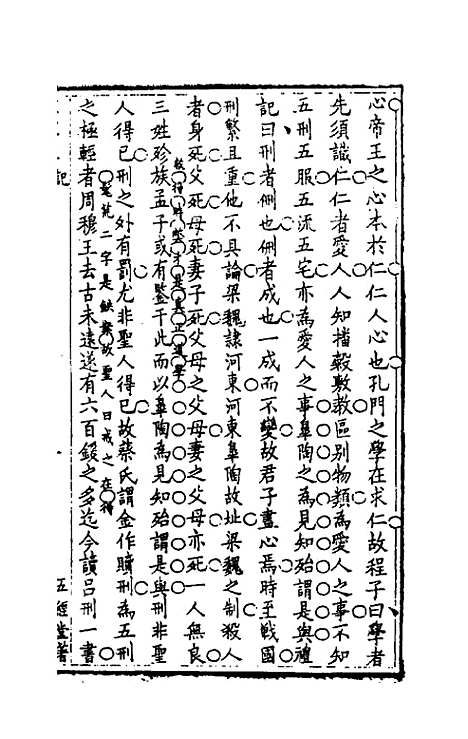 心帝王之心本於仁仁人心也孔門之學在求仁故程子曰學者
先須識仁仁者愛人人知播穀敷教區別物類為愛人之事不知
五刑五服五流五宅亦為愛人之事皐陶之為見知殆謂是與禮
記曰刑者侀也侀者成也一成而不變故君子盡心焉時至戰國
刑繁且重他不具論梁魏隷河東河東皐陶故址梁魏之制殺人
者身死父死母死妻子死父母之父母妻之父母亦死一人無良
三姓殄族孟子或有鑒于此而以皐陶為見知殆謂是與刑非聖
人得已刑之外有罰尤非聖人得已故蔡氏謂金作贖刑為五刑
之極輕者周穆王去古未遠遂有六百鍰之多迄今讀呂刑一書
二字是
故聖人曰戒之在得
記
五經堂著